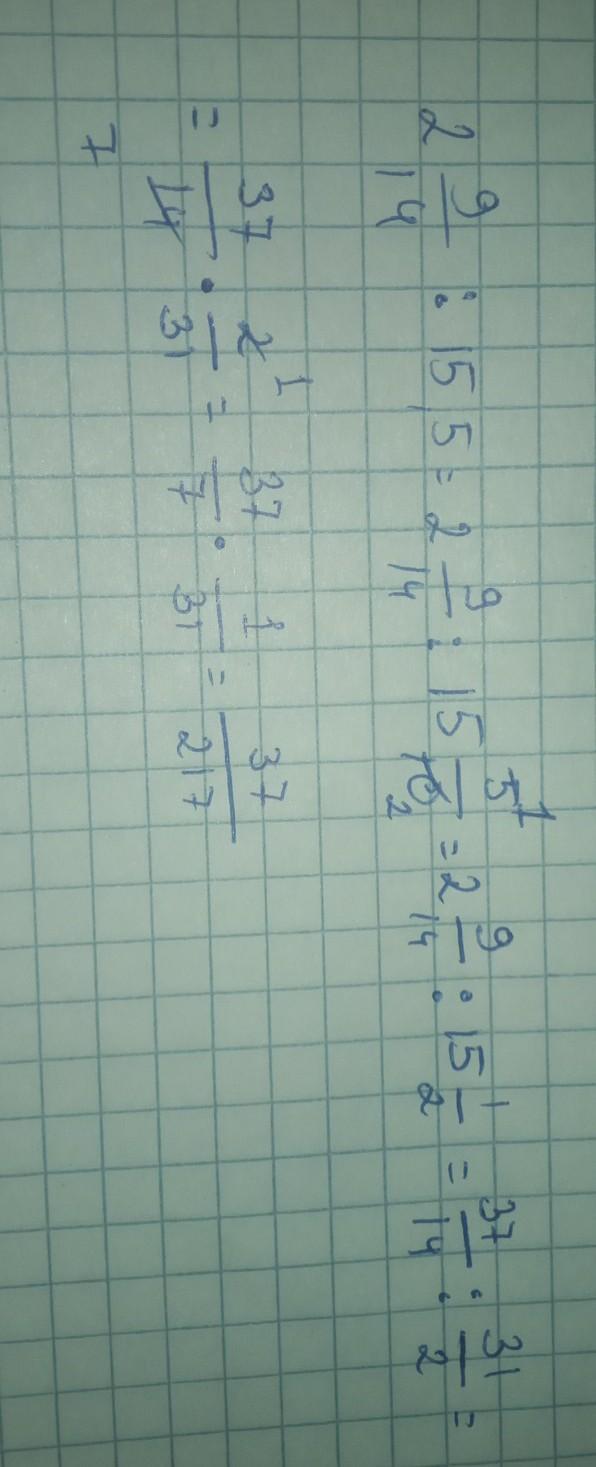 2 9/14 : 15,5 = 2 9/14 : 15 5/10 1/2 = 2 9/14 : 15 1/2 = 37/14 : 31/2 =
= 37/14 7 · 2/31 1 = 37/7 · 1/31 = 37/217